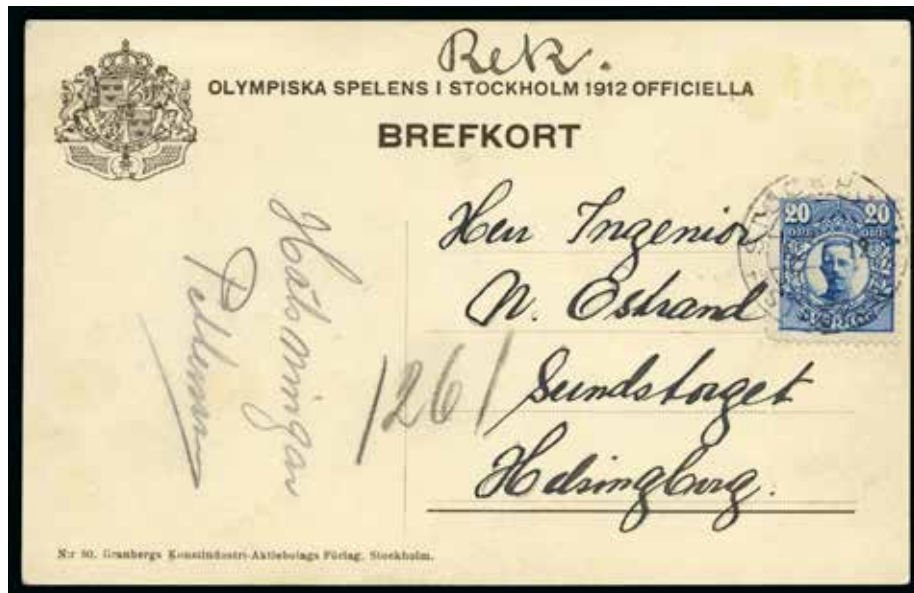 Rek.
OLYMPISKA SPELENS I STOCKHOLM 1912 OFFICIELLA
BREFKORT
20 20
ÖRE ÖRE
SVERIGE
Herr Ingeniör
N. Östrand
Sundstorget
Helsingborg.
1261
N:r 80. Granbergs Konstindustri-Aktiebolags Förlag, Stockholm.